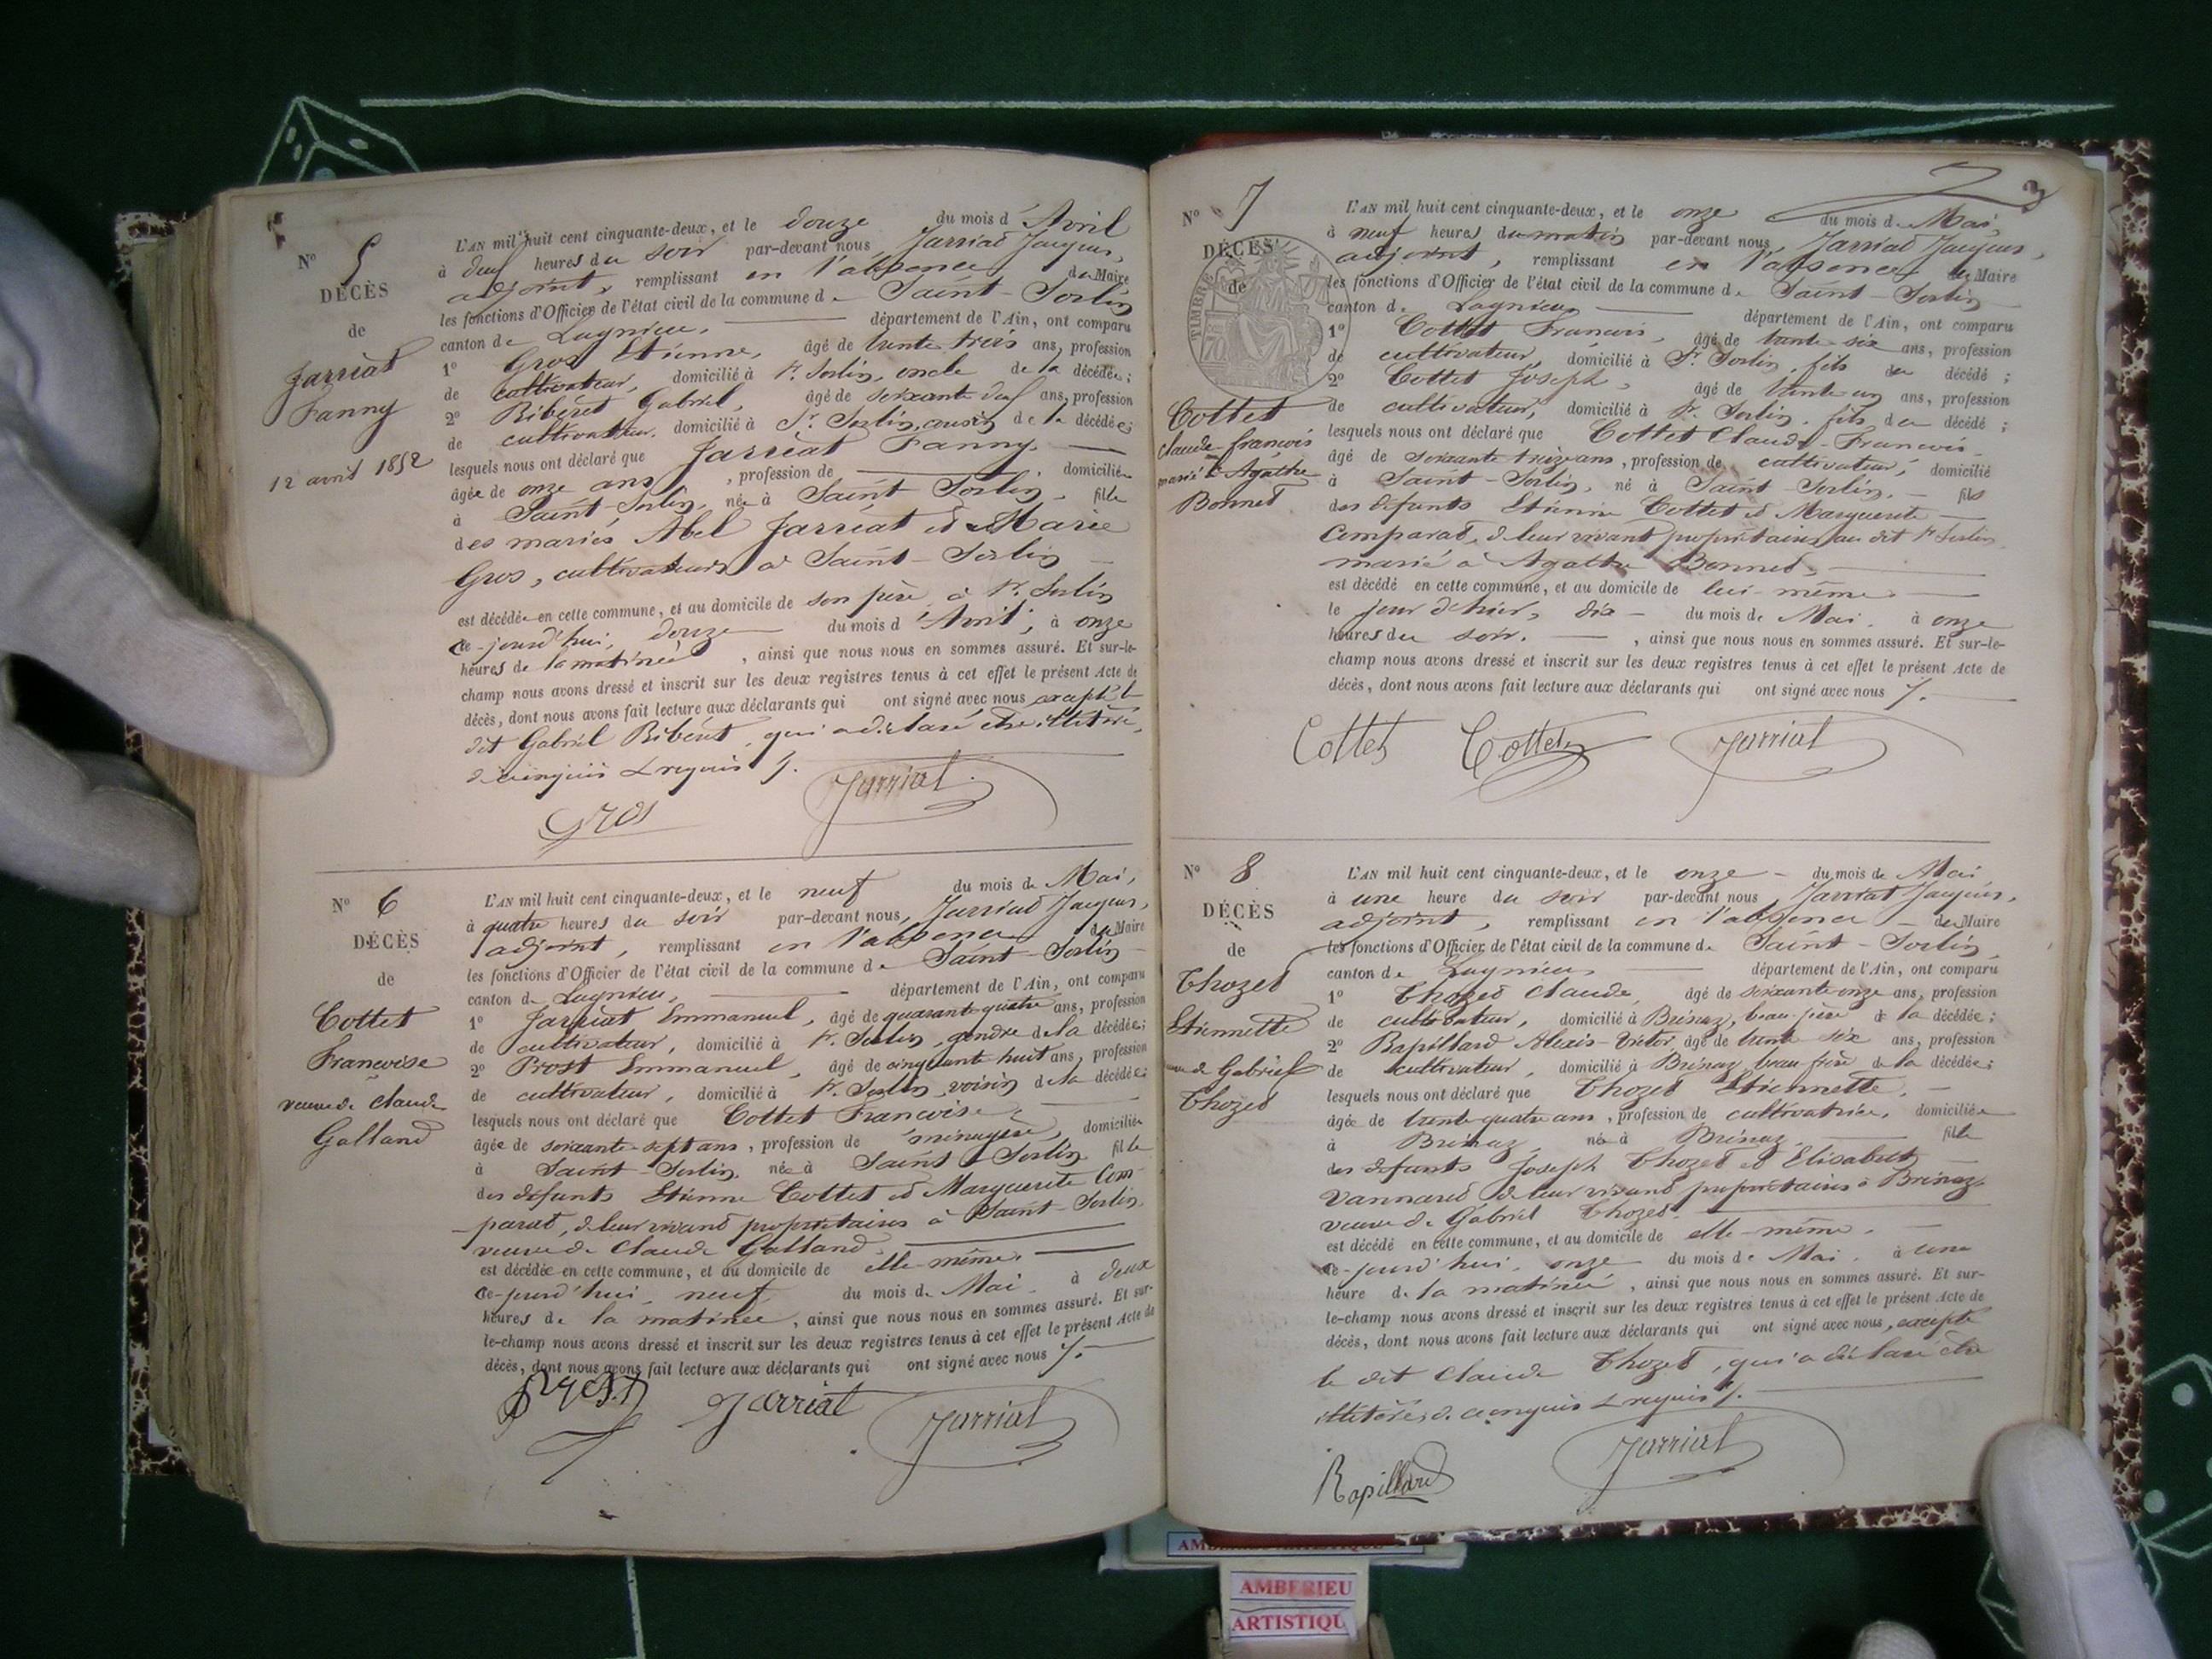 N° 5
DÉCÈS
de
Jarriat
Fanny
12 avril 1852
L'AN mil huit cent cinquante-deux, et le douze du mois d'Avril
à deux heures du soir par-devant nous, Jarriat Jacques,
adjoint, remplissant en l'absence du Maire
les fonctions d'Officier de l'état civil de la commune de Saint-Sorlin
canton de Lagnieu, département de l'Ain, ont comparu
1° Gros Etienne, âgé de trente trois ans, profession
de cultivateur, domicilié à St. Sorlin, oncle de la décédée;
2° Ribéret Gabriel, âgé de soixante deux ans, profession
de cultivateur, domicilié à St. Sorlin, cousin de la décédée;
lesquels nous ont déclaré que Jarriat Fanny,
âgée de onze ans, profession de , domiciliée
à Saint-Sorlin, née à Saint Sorlin, fille
des mariés Abel Jarriat et Marie
Gros, cultivateurs à Saint-Sorlin
est décédée en cette commune, et au domicile de son père, à St. Sorlin
ce-jourd'hui, douze du mois d'Avril, à onze
heures de la matinée, ainsi que nous nous en sommes assuré. Et sur-le-
champ nous avons dressé et inscrit sur les deux registres tenus à cet effet le présent Acte de
décès, dont nous avons fait lecture aux déclarants qui ont signé avec nous excepté le
dit Gabriel Ribéret, qui a déclaré être illétéré,
de ce enquis & requis /.
Gros Jarriat
N° 6
DÉCÈS
de
Cottet
Francoise
veuve de Claude
Galland
L'AN mil huit cent cinquante-deux, et le neuf du mois de Mai,
à quatre heures du soir par-devant nous, Jarriat Jacques,
adjoint, remplissant en l'absence du Maire
les fonctions d'Officier de l'état civil de la commune de Saint-Sorlin
canton de Lagnieu, département de l'Ain, ont comparu
1° Jarriat Emmanuel, âgé de quarante-quatre ans, profession
de cultivateur, domicilié à St. Sorlin, gendre de la décédée;
2° Prost Emmanuel, âgé de cinquante huit ans, profession
de cultivateur, domicilié à St. Sorlin, voisin de la décédée;
lesquels nous ont déclaré que Cottet Francoise,
âgée de soixante-sept ans, profession de ménagère, domiciliée
à Saint-Sorlin, née à Saint-Sorlin fille
des défunts Etienne Cottet et Marguerite Com-
-parat, de leur vivant propriétaires à Saint-Sorlin,
veuve de Claude Galland.
est décédée en cette commune, et au domicile de elle-même,
ce-jourd'hui, neuf du mois de Mai, à deux
heures de la matinée, ainsi que nous nous en sommes assuré. Et sur-
le-champ nous avons dressé et inscrit sur les deux registres tenus à cet effet le présent Acte de
décès, dont nous avons fait lecture aux déclarants qui ont signé avec nous /.
Prost Jarriat Jarriat
N° 7
DÉCÈS
de
TIMBRE
Cottet
claude-françois
marié à Agathe
Bonnet
L'AN mil huit cent cinquante-deux, et le onze du mois de Mai,
à neuf heures du matin par-devant nous, Jarriat Jacques,
adjoint, remplissant en l'absence du Maire
les fonctions d'Officier de l'état civil de la commune de Saint-Sorlin
canton de Lagnieu département de l'Ain, ont comparu
1° Cottet Francois, âgé de trente-six ans, profession
de cultivateur, domicilié à St. Sorlin, fils du décédé;
2° Cottet Joseph, âgé de trente un ans, profession
de cultivateur, domicilié à St. Sorlin, fils du décédé;
lesquels nous ont déclaré que Cottet Claude-Francois
âgé de soixante treize ans, profession de cultivateur, domicilié
à Saint-Sorlin, né à Saint-Sorlin, fils
des défunts Etienne Cottet et Marguerite
Comparat, de leur vivant propriétaires au dit St Sorlin
marié à Agathe Bonnet,
est décédé en cette commune, et au domicile de lui-même
le jour d'hier, dix du mois de Mai, à onze
heures du soir, ainsi que nous nous en sommes assuré. Et sur-le-
champ nous avons dressé et inscrit sur les deux registres tenus à cet effet le présent Acte de
décès, dont nous avons fait lecture aux déclarants qui ont signé avec nous /.
Cottet Cottet Jarriat
N° 8
DÉCÈS
de
Thozet
Etiennette
veuve de Gabriel
Thozet
L'AN mil huit cent cinquante-deux, et le onze du mois de Mai
à une heure du soir par-devant nous Jarriat Jacques,
adjoint, remplissant en l'absence du Maire
les fonctions d'Officier de l'état civil de la commune de Saint-Sorlin,
canton de Lagnieu département de l'Ain, ont comparu
1° Thozet Claude, âgé de soixante-onze ans, profession
de cultivateur, domicilié à Brénaz, beau-père de la décédée;
2° Rapillard Alexis-Victor, âgé de trente six ans, profession
de cultivateur, domicilié à Brénaz, beau frère de la décédée;
lesquels nous ont déclaré que Thozet Etiennette,
âgée de trente quatre ans, profession de cultivatrice, domiciliée
à Brénaz née à Brénaz, fille
des défunts Joseph Thozet et Elisabeth
Vannard de leur vivant propriétaires à Brénaz,
veuve de Gabriel Thozet.
est décédé en cette commune, et au domicile de elle-même,
ce-jourd'hui, onze du mois de Mai, à une
heure de la matinée, ainsi que nous nous en sommes assuré. Et sur-
le-champ nous avons dressé et inscrit sur les deux registres tenus à cet effet le présent Acte de
décès, dont nous avons fait lecture aux déclarants qui ont signé avec nous, excepté
le dit Claude Thozet, qui a déclaré être
illétéré, de ce enquis & requis /.
Rapillard Jarriat
AMBERIEU
ARTISTIQU